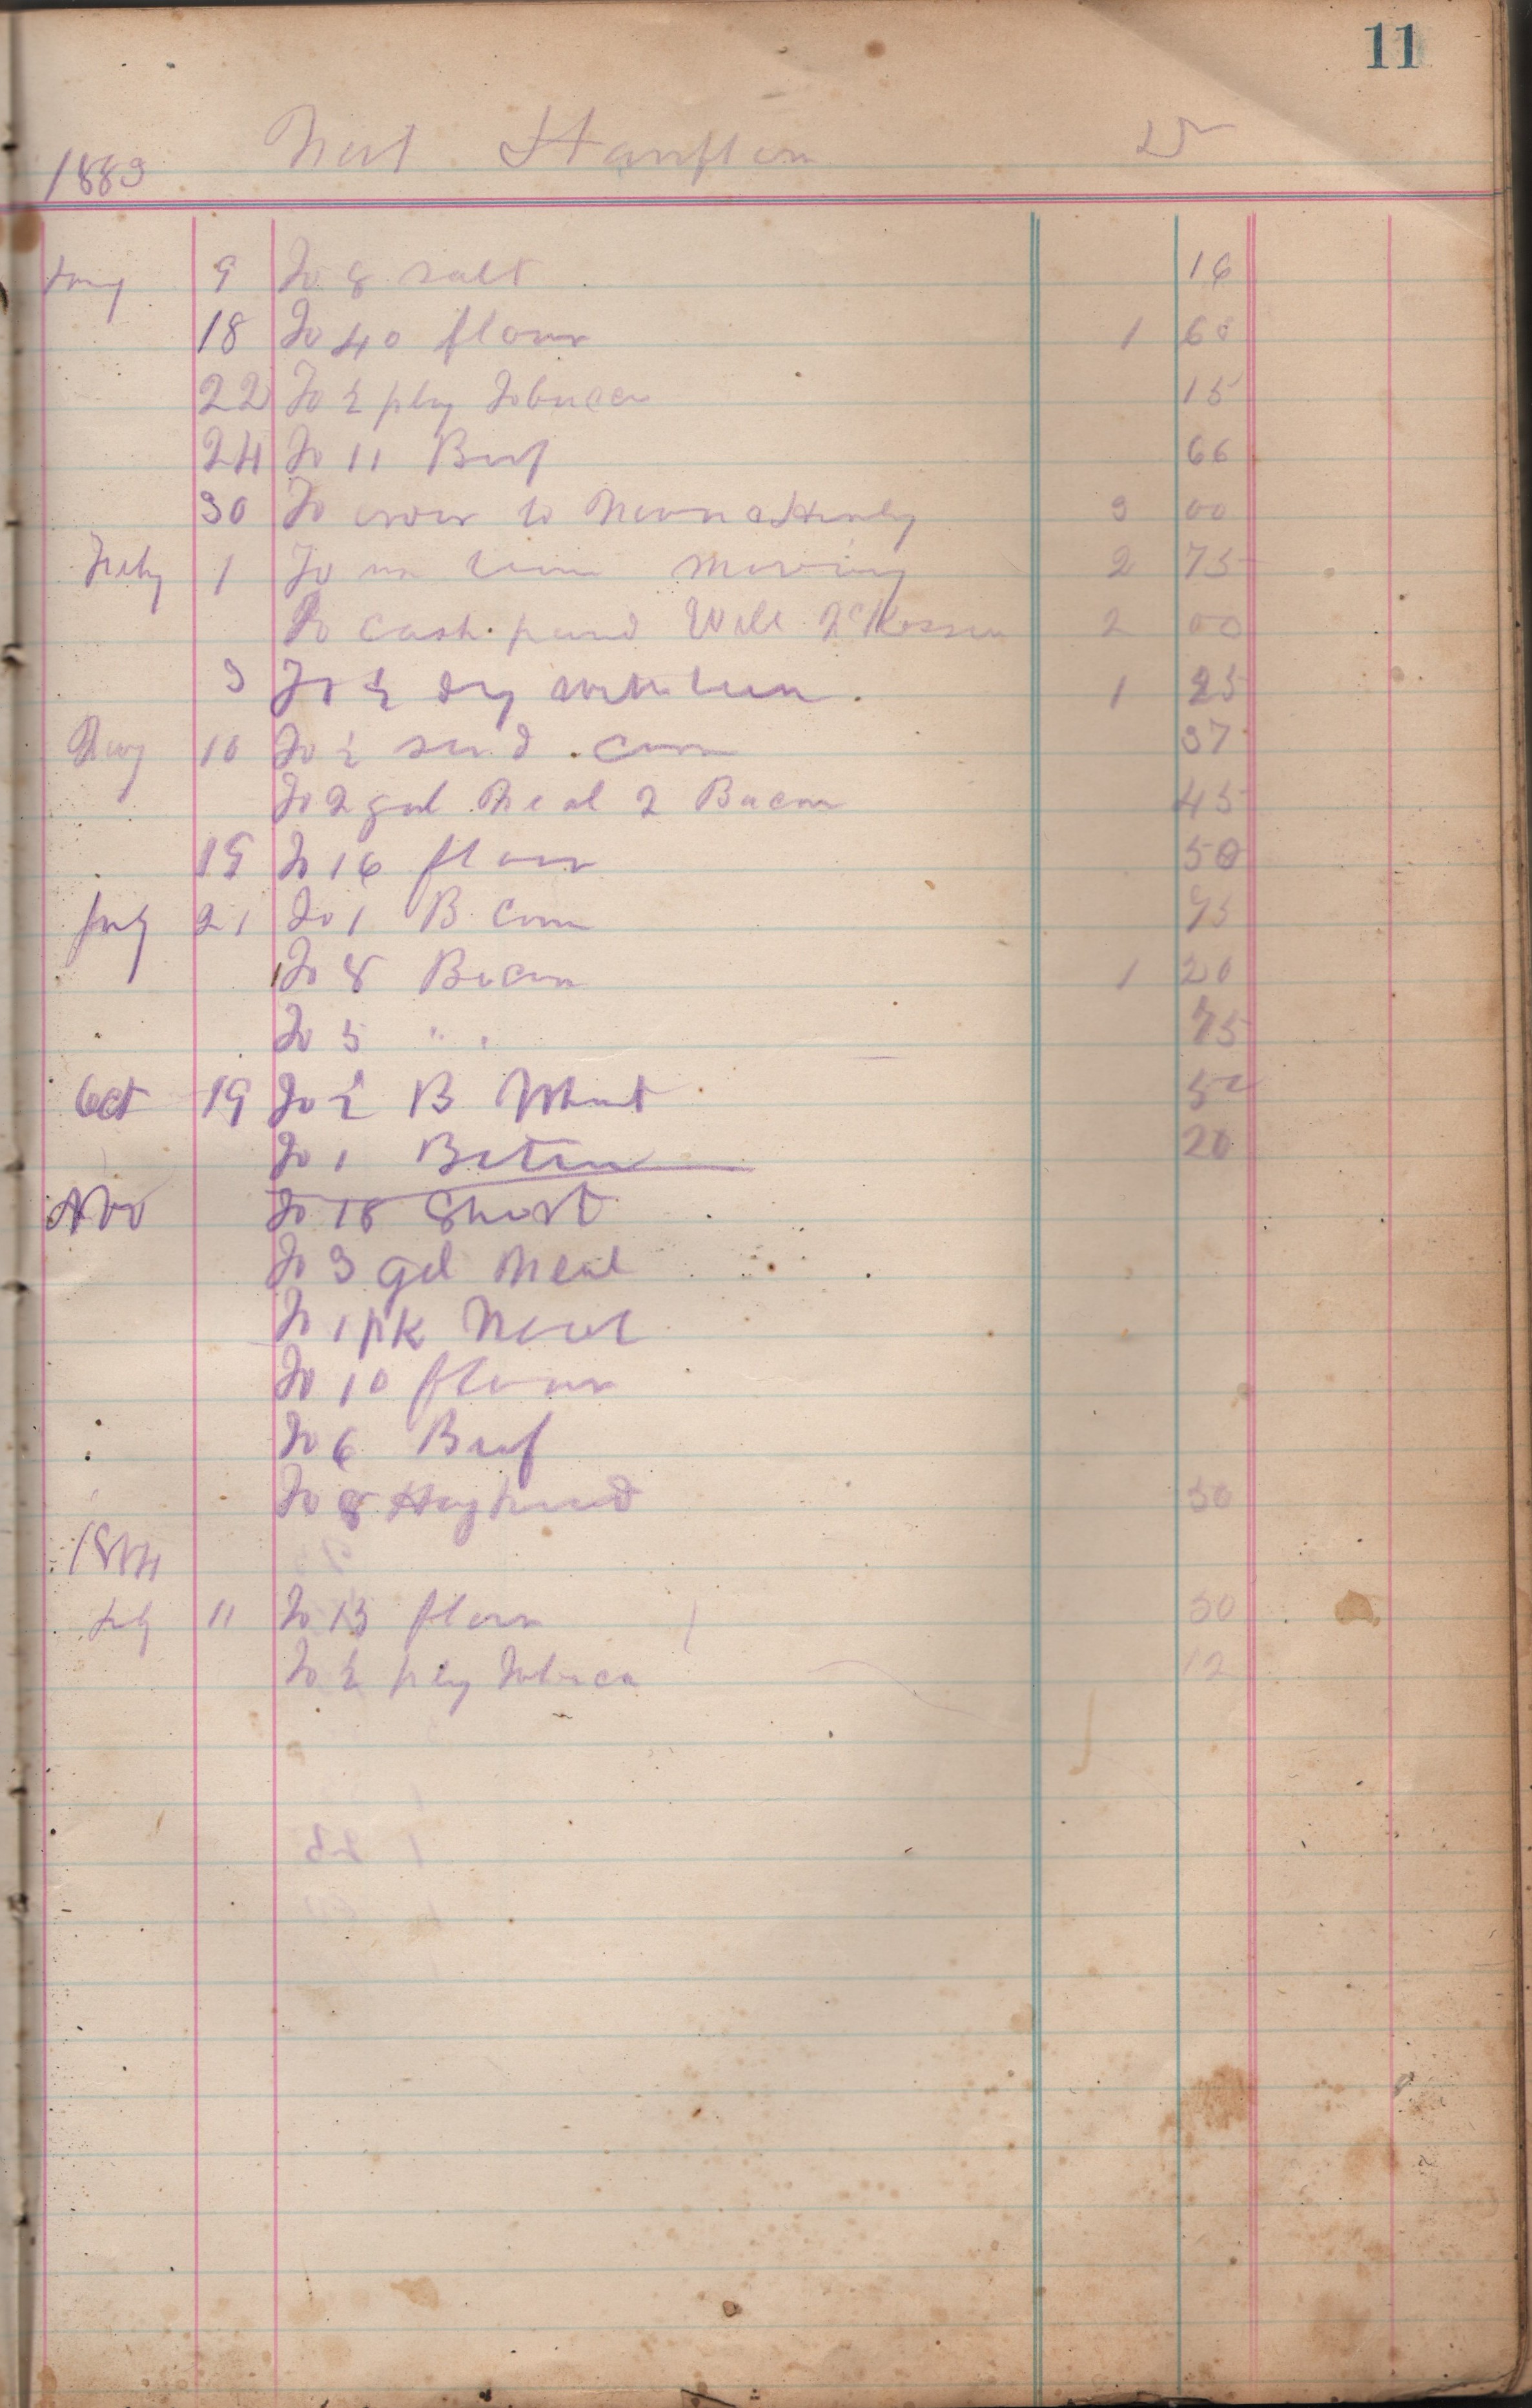 11
Hampton Dr
1883
Jany 9 To 8 salt 16
18 To 40 flour 1 60
22 To ½ plug Tobacco 15
24 To 11 Beef 66
30 To order to 3 00
Feby 1 To team moving 2 75
To cash paid Will 2 00
3 To ½ day team 1 25
May 10 To ½ seed corn 37
To 2 gal Meal 2 Bacon 45
19 To 16 flour 50
July 21 To 1 B Corn 95
To 8 Bacon 1 20
To 5 " " 75
Oct 19 To ½ B Wheat 50
To 1 20
Nov To 18 Short
To 3 gal Meal
To 1 pk Meal
To 10 flour
To 6 Beef
To 8 Hoghead 50
1884
July 11 To 13 flour 50
To ½ plug Tobacco 12